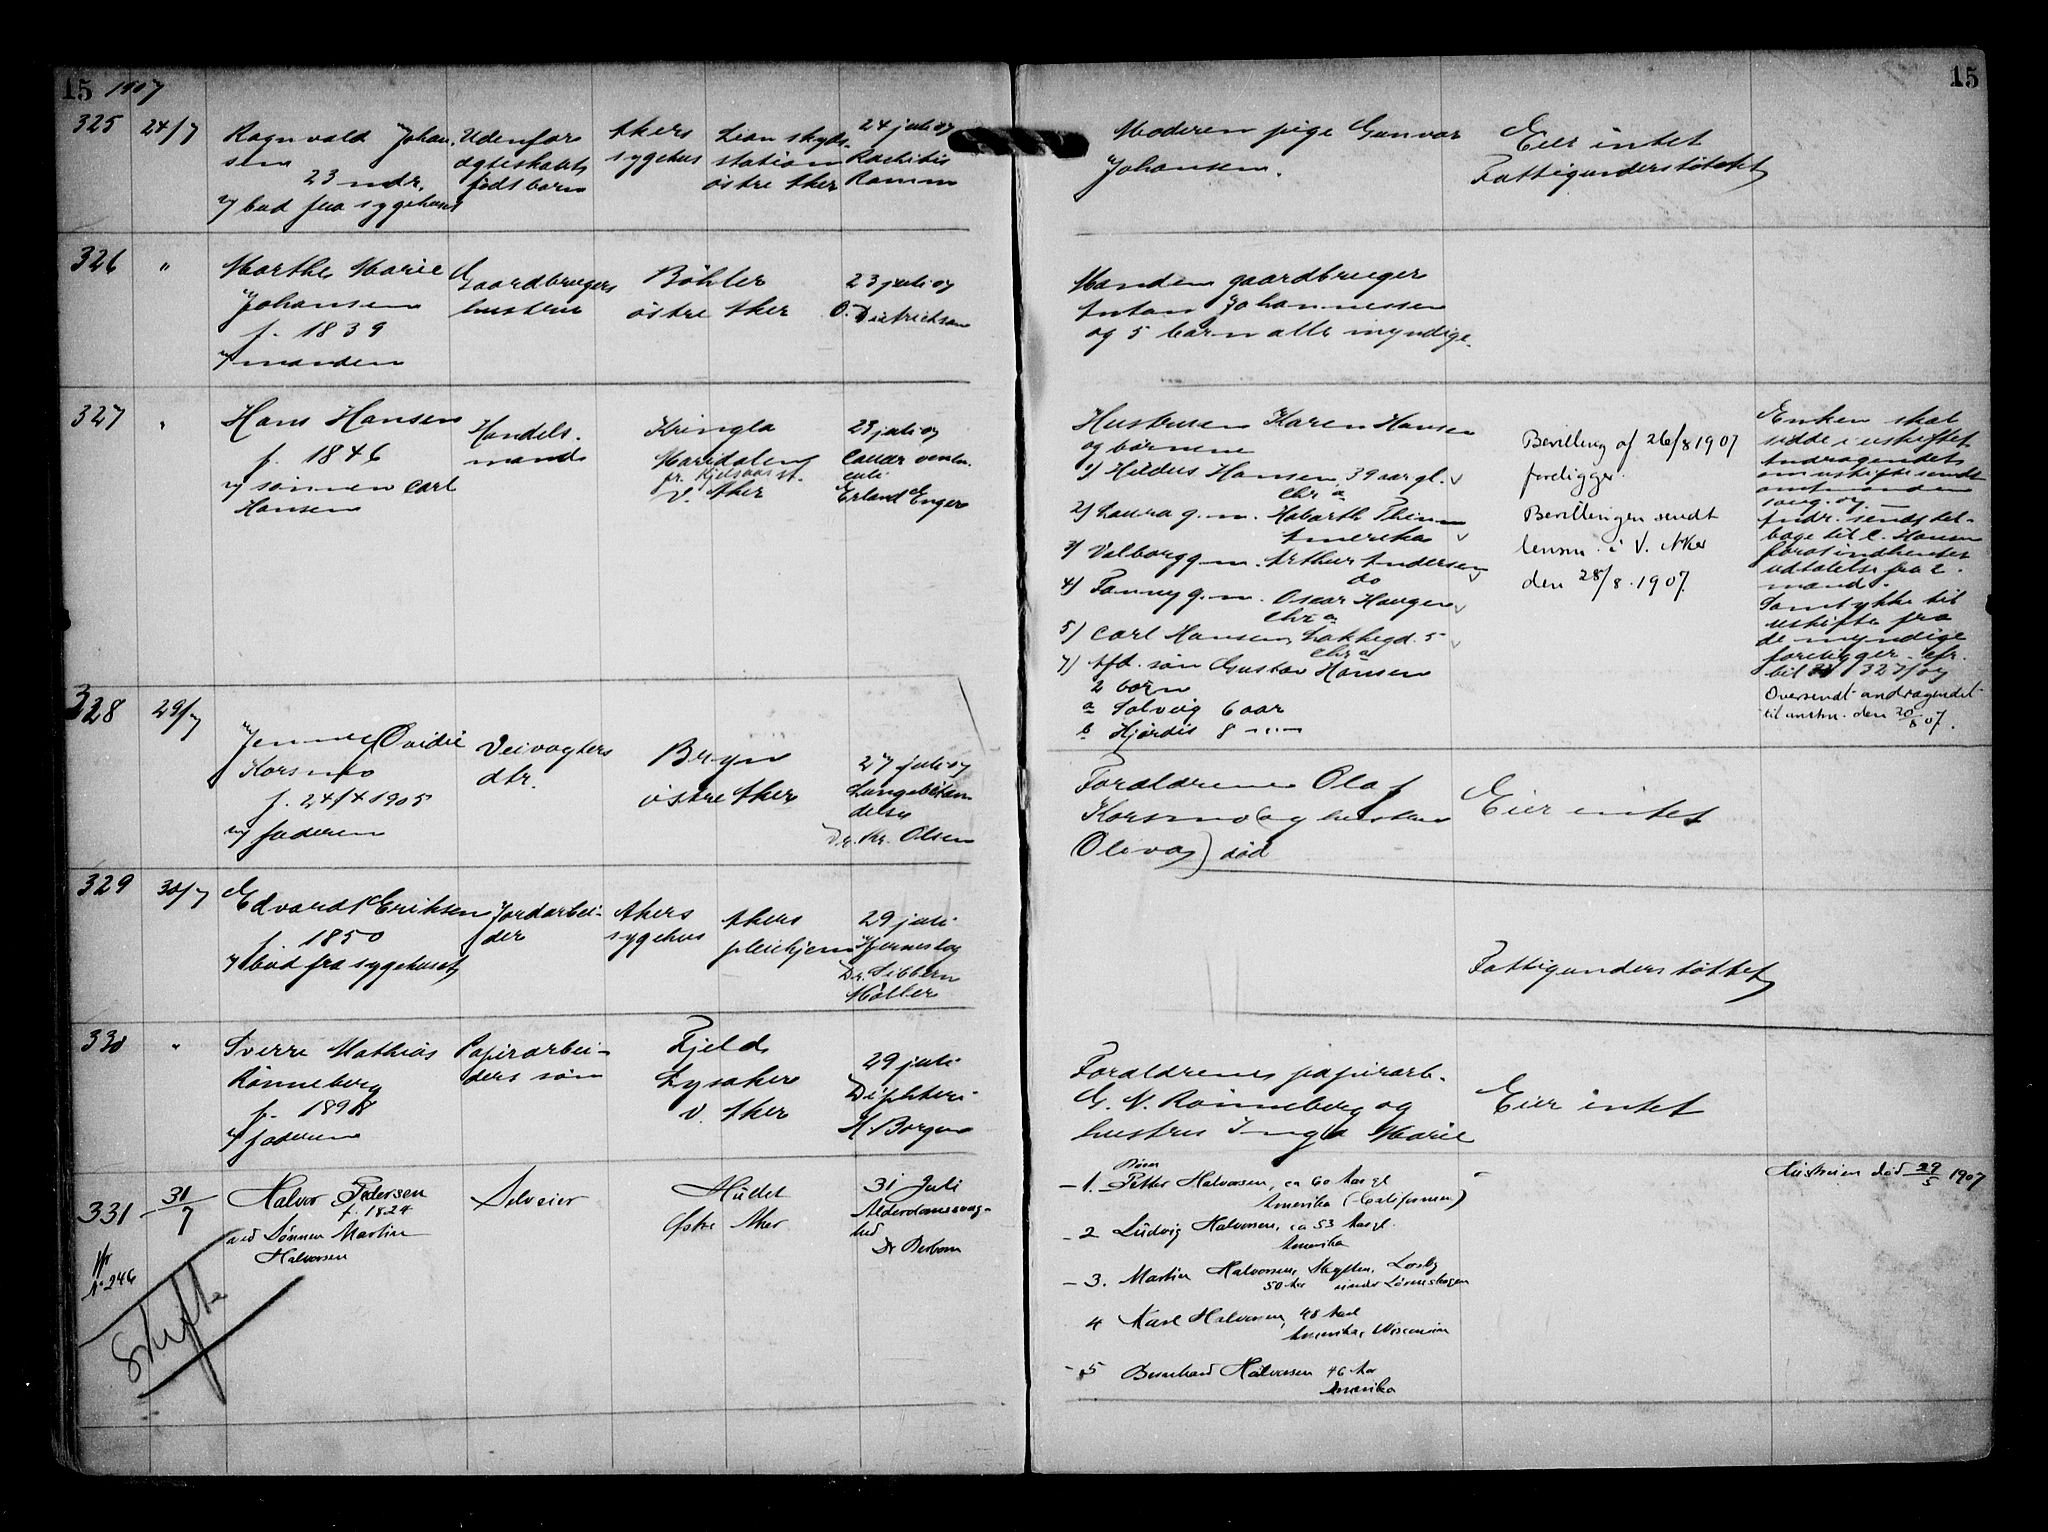 15 1907
325 24/7 Ragnvald Johan-
sen
23 mdr.
v/ bud fra sygehuset
Udenfor
ægteskabs
født barn
Akers
sygehus
Lian skyds-
station
østre Aker
24 juli 07
Rachitis
Ramm
326 "
Marthe Marie
Johansen
f. 1839
v/ manden
Gaardbrugers
hustru
Böhler
östre Aker
23 juli 07
O. Dietrichson
327 "
Hans Hansen
f. 1846
v/ sønnen Carl
Hansen
Handels-
mand
Kringla
Maridalen
pr. Kjelsaas st.
V. Aker
23 juli 07
Erland Enger
328 29/7
Jenny Ovidie
Korsmo
f. 24/4 1905
v/ faderen
Veivogters
dtr.
Bryn
östre Aker
27 juli 07
Lungebetæn-
delse
Dr. Kr. Olsen
329 30/7
Edvard Eriksen
f. 1850
v/ bud fra sygehuset
Jordarbei-
der
Akers
sygehus
Akers
pleiehjem
29 juli
Hjerneslag
Dr. Sibbern
Møller
330 "
Sverre Mathias
Rønneberg
f. 1898
v/ faderen
Papirarbei-
ders søn
Fjeld
Lysaker
V. Aker
29 juli
Diphteri
H. Borgen
331 31/7
Halvor Pedersen
f. 1824
ved Sønnen Martin
Halvorsen
Selveier
Østre Aker
31 Juli
Alderdomssvag-
hed
No 246
Skifte
15
Moderen pige Gunvor
Johansen.
Eier intet
Fattigunderstøttet
Manden gaardbruger
Anton Johannessen
og 5 barn alle myndige.
Hustruen Karen Hansen
og børnene
1) Hansen 39 aar gl.
Chr a
2) Laura g.m. Hobarth
Amerika
3) Valborg g.m. Arthur Andersen
do
4) Fanny g.m. Oscar Haugen
Chr a
5) Carl Hansen, Lakkegd. 5
Chr a
7) Afd. søn Gustav Hansen
2 born
a Solveig 6 aar
b Hjørdis 8 "
Bevilling af 26/8 1907
foreligger.
Bevillingen sendt
lensm. i V. Aker
den 28/8. 1907.
Enken skal
sidde i uskiftet.
Andragendet
om uskifte sendt
amtmanden
Andr. sendt til-
bage til C. Hansen
for at indhente
udtalelse fra 2
mænd.
Samtykke til
uskifte fra
de myndige
foreligger. Cfr.
bil 327/07
Oversendt andragendet
til amtm. den 20/8 07.
Forældrene Olaf
Korsmo (og hustru
Oliva) død
Eier intet
Fattigunderstøttet
Forældrene papirarb.
G. N. Rönneberg og
hustru Inga Marie
Eier intet
Børn
1. Petter Halvorsen, ca 60 Aar gl
Amerika (Californien)
2 Ludvig Halvorsen, ca 53 Aar gl.
Amerika
3. Martin Halvorsen, Losby
50 Aar under Lørenskogen
4 Karl Halvorsen, 48 Aar
Amerika, Wisconsin
5 Bernhard Halvorsen 46 Aar
Amerika
Hustruen død 29/5 1907